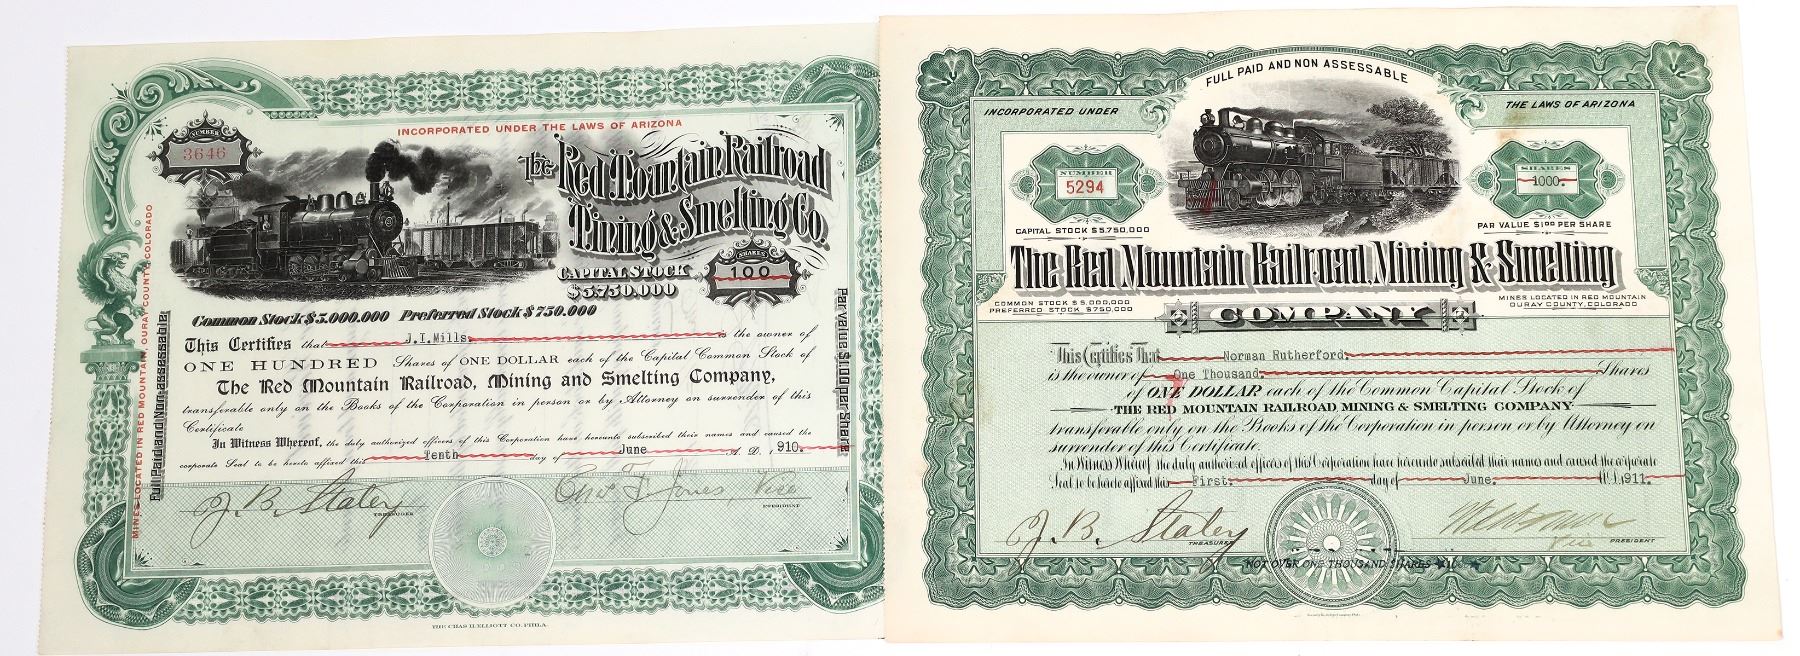 NUMBER
3646
INCORPORATED UNDER THE LAWS OF ARIZONA
The Red Mountain Railroad
Mining & Smelting Co.
CAPITAL STOCK
$5.750.000
SHARES
100
Common Stock $5.000.000 Preferred Stock $750.000
MINES LOCATED IN RED MOUNTAIN, OURAY COUNTY, COLORADO
Full Paid and Non-assessable
Par value $1.00 per share
This Certifies that J.I.Mills. is the owner of
ONE HUNDRED Shares of ONE DOLLAR each of the Capital Common Stock of
The Red Mountain Railroad, Mining and Smelting Company,
transferable only on the Books of the Corporation in person or by Attorney on surrender of this
Certificate
In Witness Whereof, the duly authorized officers of this Corporation have hereunto subscribed their names and caused the
corporate Seal to be hereto affixed this Tenth day of June A.D. 1910.
J. B. Staley
TREASURER
Chas F Jones Vice
PRESIDENT
THE CHAS. H. ELLIOTT CO. PHILA.
FULL PAID AND NON ASSESSABLE
INCORPORATED UNDER THE LAWS OF ARIZONA
NUMBER
5294
SHARES
1000.
CAPITAL STOCK $5.750,000
PAR VALUE $1.00 PER SHARE
The Red Mountain Railroad, Mining & Smelting
COMMON STOCK $5,000,000
PREFERRED STOCK $750,000
MINES LOCATED IN RED MOUNTAIN
OURAY COUNTY, COLORADO
COMPANY
This Certifies That Norman Rutherford.
is the owner of One Thousand. Shares
of ONE DOLLAR each of the Common Capital Stock of
THE RED MOUNTAIN RAILROAD MINING & SMELTING COMPANY
transferable only on the Books of the Corporation in person or by Attorney on
surrender of this Certificate.
In Witness Whereof the duly authorized officers of this Corporation have hereunto subscribed their names and caused the corporate
Seal to be hereto affixed this First. day of June. A.D. 1911.
J. B. Staley
TREASURER
Vice
PRESIDENT
NOT OVER ONE THOUSAND SHARES